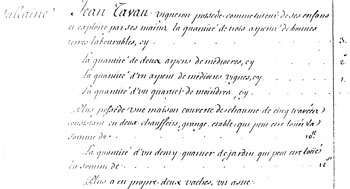 Jean Tavan vigneron possede comme tuteur de ses enfans
et exploite par ses mains la quantité de trois arpens de bonnes
terres labourables, cy . . . 3.
La quantité de deux arpens de mediocres, cy . . . 2.
La quantité d'un arpen de mediocres vignes, cy . . . 1.
La quantité d'un quartier de moindres, cy . . .
Plus possède une maison couverte de chaume de cinq travées
consistant en deux chauffoirs, grange, etable, qui peut etre louée la
somme de
La quantité d'un demy quartier de jardin qui peut etre loué
la somme de
Plus a en propre deux vaches, un asne